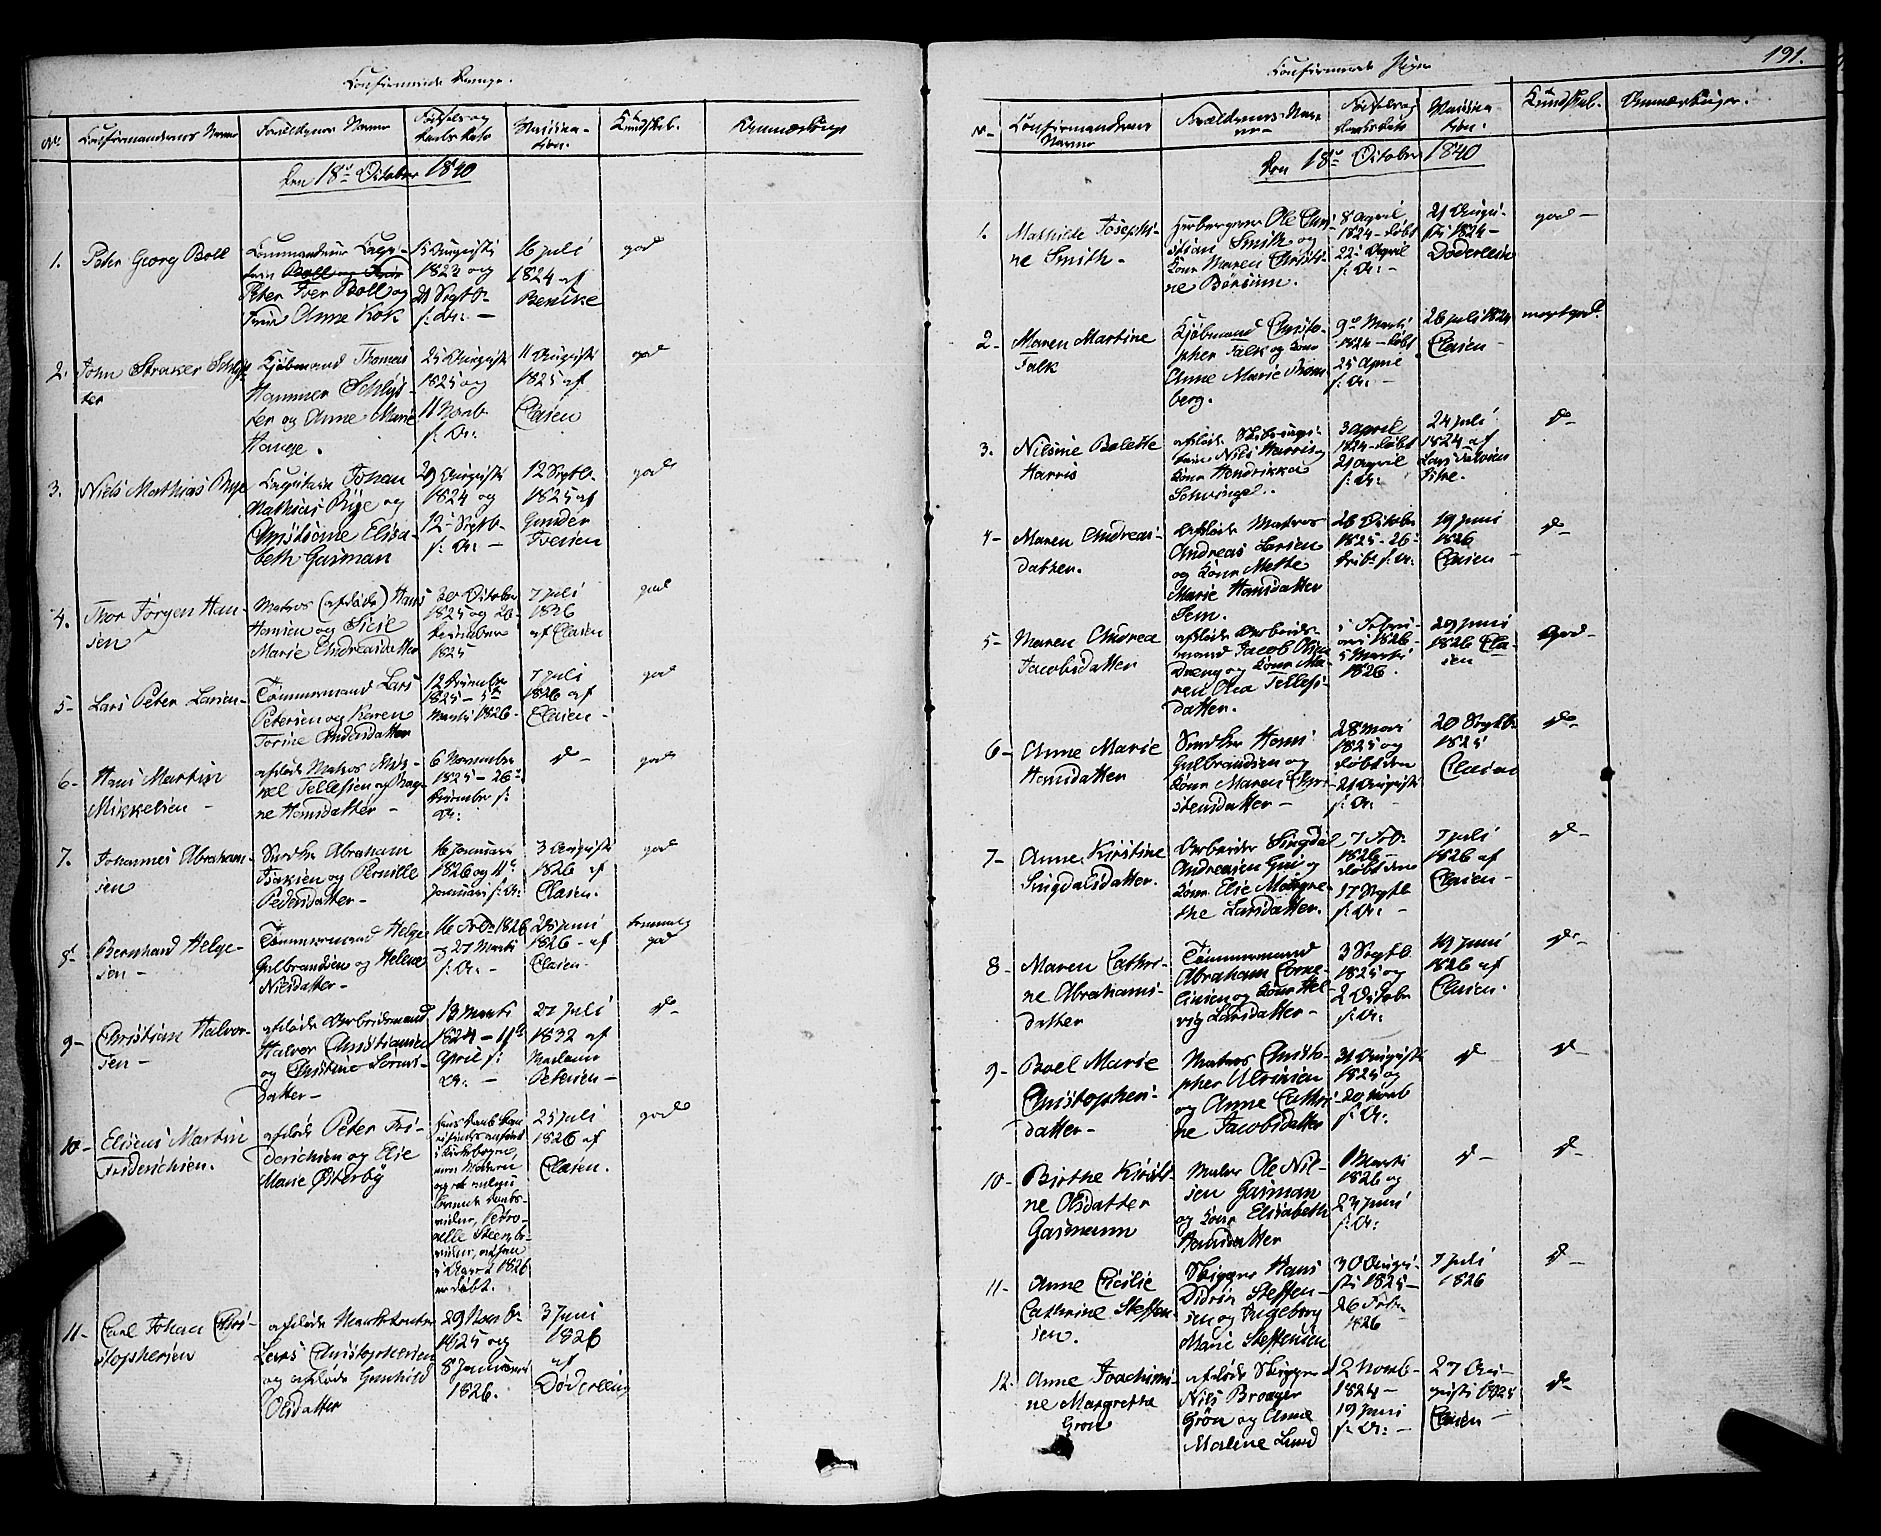 Confirmerede Drenge.
No. Confirmandernes Navne Forældrenes Navne Fødsels og Daabs Dato Vaccination. Kundskab. Anmærkninger
Den 18de October 1840
1. Peter Georg Boll
Commandeur Capi-
tain
Peter Iver Boll og
Frue Anne Kok
15 Augusti
1823 og
21 Septb.
s: A: —
16 juli
1824 af
Benike
god
2. John Straker Schlyt-
ter
Kjøbmand Thomas
Hammer Schlyt-
ter og Anne Marie
Hauge.
25 Augusti
1825 og
11 Novb
s: A:
11 Augusti
1825 af
Clasen
god
3. Niels Mathias Rye
Capitain Johan
Mathias Rye og
Christiane Elisa-
beth Gasman
29 Augusti
1824 og
12 Septb.
s: A: —
12 Septb.
1825 af
Gunder
Iversen
god
4. Thor Jørgen Han-
sen
Matros (afdøde) Hans
Hansen og Sicil
Marie Andreasdatter
30 October
1825 og 26
december
1825
7 juli
1826
af Clasen
god
5 - Lars Peter Larsen -
Tømmermand Lars
Petersen og Karen
Torine Andersdatter
12 december
1825 - 5te
Martii 1826 -
7 juli
1826 af
Clasen -
god
6 - Hans Martin
Mikkelsen -
afdøde Matros Mik-
kel Tellefsen og Rag-
ne Hansdatter -
6 November
1825 - 26de
december s:
A: -
do -
god
7. Johannes Abraham-
sen
Snedker Abraham
Isaksen og Pernille
Pedersdatter -
16 Januarii
1826 og
Januari s: A: -
3 Augusti
1826 af
Clasen -
god
8 - Bernhard Helge-
sen -
Tømmermand Helge
Gulbrandsen og Helene
Nilsdatter -
16 Feb: 1826
27 Marts
s: A: -
28 juni
1826 - af
Clasen -
temmelig
god
9 - Christian Halvor-
sen -
afdøde Arbeidsmand
Halvor Christiansen
og Christine Sørens-
datter -
13 Marti
1824 - 11te
April s:
A: -
27 juli
1832 af
Madame
Petersen -
do -
10 - Elisæus Martin
Friderichsen.
afdøde Peter Fri-
derichsen og Elie
Marie Østerby
hans Daab kan
ei findes anført
i Kirkebogen,
1826
er døbt.
25 juli
1826 af
Clasen.
god
11 - Carl Johan Chri-
stophersen
afdøde
Lars Christophersen
og afdøde Gunhild
Olsdatter
29 Novbr.
1825 og
8 Januari
1826.
3 juni
1826
af
Døderlein
Confirmerede Piger
191.
No - Confirmandernes Navne Forældrenes Navne - Fødsels og Daabs Dato Vaccination. Kundskab. Anmærkninger.
Den 18de October 1840
1. Mathilde Josephi-
ne Smith -
Herbergerer Ole Chri-
stian Smith og
Kone Maren Christi-
ne Børsum.
8 April
1824 - døbt
22 April
s: A: -
21 Augu-
sti 1824 -
Døderlein
god -
2 - Maren Martine
Falk
Kjøbmand Christo-
pher Falk og Kone
Anne Marie Brom-
berg.
9de Marti
1824 - døbt
25 April
s: A: -
26 juli 1824
Clasen -
meget god.
3. Nilsine Bolette
Harris
afdøde Skibscapi-
tain Nils Harris og
Kone Hendrikka
Schvingel.
3 april
1824 - døbt
21 april
s: A:
24 juli
1824 af
Lars Salvesen
do -
4 - Maren Andreas-
datter.
Afdøde Matros
Andreas Larsen
og Kone Mette
Marie Hansdatter
Sem.
26 October
1825 - 26
Decbr s: A:
19 juni
1826
Clasen -
do -
5 - Maren Andrea
Jacobsdatter
afdøde Arbeids-
mand Jacob Olsen
Dræng og Kone Ma-
ren Olea Tellefs-
datter.
i Febru-
ari 1826 -
5 Marti
1826.
29 juni
1826 Cla-
sen
God -
6 - Anne Marie
Hansdatter
Snedker Hans
Gulbrandsen og
Kone Maren Chri-
stensdatter -
28 Mai
1825 og
døbt den
21 Augusti
s: A: -
20 Septb.
1825
Clasen
do -
7 - Anne Kirstine
Singdalsdatter.
Arbeider Singdal
Andreasen og
Kone Elie Margre-
the Larsdatter.
7 Feb.
1826 -
døbt den
17 Septb.
s: A: -
7 juli
1826 af
Clasen -
do -
8 - Maren Cathri-
ne Abrahams-
datter
Tømmermand
Abraham Corne-
liusen og Kone Hel-
vig Larsdatter -
3 Septb.
1825 og
2 Octobr
s: A:
19 juni
1826 af
Clasen.
do -
9 - Boel Marie
Christophers-
datter -
Matros Christo-
pher Ulriksen
og Anne Cathri-
ne Jacobsdatter
31 Augusti
1825 og
20 Novb
s: A:
do -
do -
10 - Birthe Kirsti-
ne Olsdatter
Gasmann
Maler Ole Nil-
sen Gasman
og Kone Elisabeth
Hansdatter
1 Marti
1826 og
24 juni
s: A:
do -
do -
11 - Anne Cicilie
Cathrine Steffen-
sen.
Skipper Hans
Didrik Steffen-
sen og Ingeborg
Marie Steffensen
30 Augu-
sti 1825 -
26 Febr.
1826
7 juli
1826
do -
12. Anne Joachimi-
ne Margrethe
Grøn
afdøde Skipper
Nils Broager
Grøn og Anne
Maline Lund
12 Novb.
1824 -
19 juni
s: A: -
27 Au-
gusti 1825
Clasen -
do -